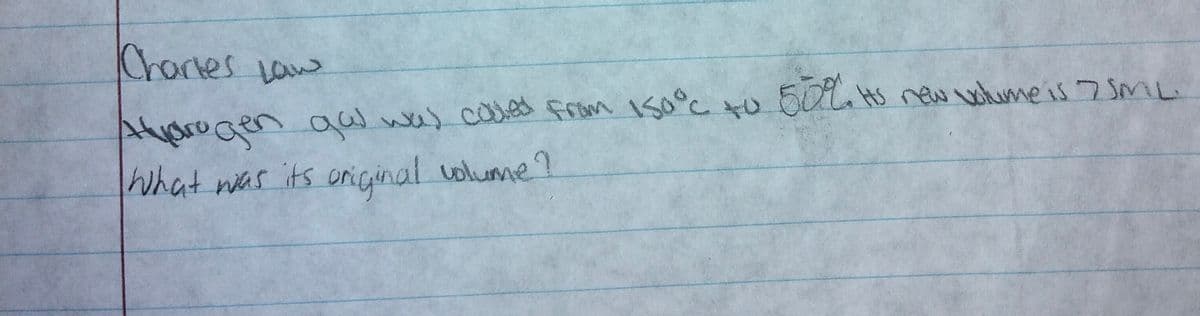 Charles Law
Hydrogen gas was cooled from 150°C to 50°C. Its new volume is 75mL.
What was its original volume?